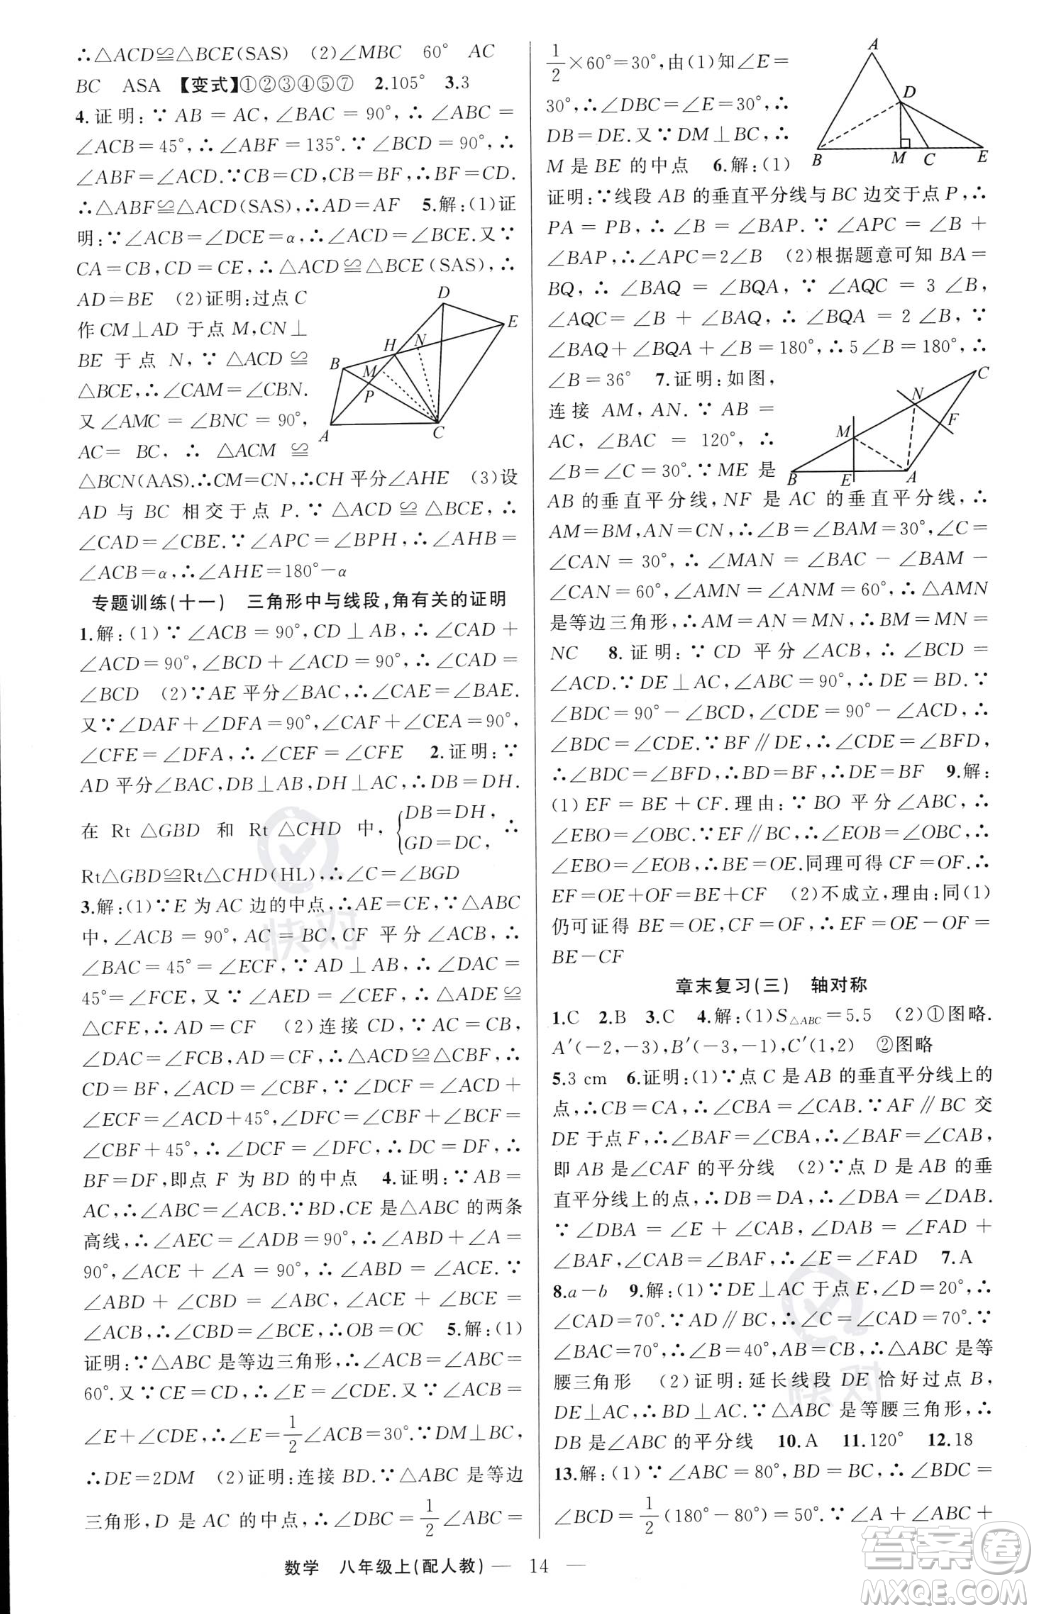 ∴△ACD≌△BCE(SAS) (2)∠MBC 60° AC
BC ASA 【变式】①②③④⑤⑦ 2.105° 3.3
4.证明:∵ AB = AC,∠BAC = 90°,∴ ∠ABC =
∠ACB = 45°,∴ ∠ABF = 135°.∵ ∠BCD = 90°,∴
∠ABF=∠ACD.∵∠CBF=∠BCF,∴BF=CD.
∴△ABF≌△ACD(SAS),∴AD=AF 5.解:(1)证
明:∵∠ACB=∠DCE=α,∴∠ACD=∠BCE.又∵
CA=CB,CD=CE,∴△ACD≌△BCE(SAS),∴
AD=BE (2)证明:过点 C
作 CM⊥AD 于点 M,CN⊥
BE 于点 N,∵ △ACD ≌
△BCE,∴∠CAM=∠CBN.
又∠AMC = ∠BNC = 90°,
AC= BC,∴ △ACM ≌
△BCN(AAS).∴CM=CN,∴CH 平分∠AHE (3)设
AD 与 BC 相交于点 P.∵ △ACD ≌ △BCE,∴
∠CAD=∠CBE.∵∠APC=∠BPH,∴∠AHB=
∠ACB=α,∴∠AHE=180°-α
专题训练(十一) 三角形中与线段,角有关的证明
1.解:(1)∵∠ACB=90°,CD⊥AB,∴∠CAD+
∠ACD=90°,∠BCD+∠ACD=90°,∴∠CAD=
∠BCD (2)∵AE平分∠BAC,∴∠CAE=∠BAE.
又∵∠DAF+∠DFA=90°,∠CAF+∠CEA=90°,
∠CFE=∠DFA,∴∠CEF=∠CFE 2.证明:∵
AD 平分∠BAC,DB⊥AB,DH⊥AC,∴DB=DH.
在 Rt △GBD 和 Rt △CHD 中, { DB=DH, GD=DC, ∴
Rt△GBD≌Rt△CHD(HL),∴∠C=∠BGD
3.解:(1)∵E 为 AC 边的中点,∴AE=CE,∵△ABC
中,∠ACB = 90°,AC = BC,CF 平分∠ACB,∴
∠BAC= 45° =∠ECF,∵ ∠BAD = 15°,∴ ∠EAD =
30° = ∠FCE,又∵ ∠AED = ∠CEF,∴ △ADE ≌
△CFE,∴ AD = CF (2)连接 CD,∵ AD = CF,
∠DAC=∠FCB,AC=CB,∴△ACD≌△CBF,∴
CD = BF,∠ACD = ∠CBF.∵ ∠DCF = ∠ACD +
∠ECF=∠ACD+45°,∠DFC=∠CBF+∠BCF=
∠CBF + 45°,∴ ∠DCF = ∠DFC,∴ DC = DF,∴
BF=DF,即点 F 为 BD 的中点 4.证明:∵AB=
AC,∴∠ABC=∠ACB.∵BD,CE是△ABC的两条
高线,∴∠AEC=∠ADB=90°,∴∠ABD+∠A=
90°,∠ACE + ∠A = 90°,∴ ∠ABD = ∠ACE.∵
∠ABD + ∠CBD = ∠ABC,∠ACE + ∠BCE =
∠ACB,∴∠CBD=∠BCE,∴OB=OC 5.解:(1)
证明:∵△ABC 是等边三角形,∴∠BAC=∠ACB=
60°.又∵∠ACB=∠E+∠CDE,CD=CE,∴∠CDE=
∠E,∴∠E= 1/2 ∠ACB=30°.∵DM⊥BC,
∴DE=2DM (2)证明:连接 BD.∵△ABC 是等边
三角形,D 是 AC 的中点,∴∠DBC= 1/2 ∠ABC=
1/2 ×60°=30°,由(1)知∠E=
30°,∴∠DBC=∠E=30°,∴
DB=DE.又∵DM⊥BC,∴
M 是 BE 的中点 6.解:(1)
证明:∵线段 AB 的垂直平分线与 BC 边交于点 P,∴
PA = PB,∴ ∠B = ∠BAP.∵ ∠APC = ∠B +
∠BAP,∴∠APC=2∠B (2)根据题意可知 BA=
BQ,∴ ∠BAQ = ∠BQA,∵ ∠AQC = 3 ∠B,
∠AQC = ∠B + ∠BAQ,∴ ∠BQA = 2 ∠B,∵
∠BAQ+∠BQA+∠B=180°,∴5∠B=180°,∴
∠B=36° 7.证明:如图,
连接 AM,AN.∵ AB =
AC,∠BAC = 120°,∴
∠B=∠C=30°.∵ME 是
AB 的垂直平分线,NF 是 AC 的垂直平分线,∴
AM=BM,AN=CN,∴∠B=∠BAM=30°,∠C=
∠CAN = 30°,∴ ∠MAN = ∠BAC - ∠BAM -
∠CAN=60°,∠AMN=∠ANM=60°,∴△AMN
是等边三角形,∴AM=AN=MN,∴BM=MN=
NC 8.证明:∵ CD 平分∠ACB,∴∠BCD=
∠ACD.∵DE⊥AC,∴∠DEC=90°.又∵∠DBC=90°,
∠BDC=90°-∠BCD,∠CDE=90°-∠ACD,∴
∠BDC=∠CDE.∵BF∥DE,∴∠CDE=∠BFD,
∴∠BDC=∠BFD,∴BD=BF,∴DE=BF 9.解:
(1) EF = BE + CF.理由:∵ BO 平分∠ABC,∴
∠EBO=∠OBC.∵EF∥BC,∴∠EOB=∠OBC,∴
∠EBO=∠EOB,∴BE=OE.同理可得 CF=OF.∴
EF=OE+OF=BE+CF (2)不成立,理由:同(1)
仍可证 BE = OE,CF = OF,∴ EF = OE - OF =
BE-CF
章末复习(三) 轴对称
1.C 2.B 3.C 4.解:(1)S△ABC=5.5 (2)①图略.
A′(-2,-3),B′(-3,-1),C′(1,2) ②图略
5.3 cm 6.证明:(1)∵点 C 是 AB 的垂直平分线上的
点,∴CB=CA,∴∠CBA=∠CAB.∵AF∥BC 交
DE 于点 F,∴∠BAF=∠CBA,∴∠BAF=∠CAB,
即 AB 是∠CAF 的平分线 (2)∵点 D 是 AB 的垂
直平分线上的点,∴DB=DA,∴∠DBA=∠DAB.
∵ ∠DBA = ∠E + ∠CAB,∠DAB = ∠FAD +
∠BAF,∠CAB=∠BAF,∴∠E=∠FAD 7.A
8.a-b 9.解:(1)∵DE⊥AC 于点E,∠D=20°,∴
∠CAD=70°.∵AD∥BC,∴∠C=∠CAD=70°.∵
∠BAC=70°,∴∠B=40°,AB=BC,∴△ABC 是等
腰三角形 (2)证明:延长线段 DE 恰好过点 B,
DE⊥AC,∴BD⊥AC.∵△ABC 是等腰三角形,∴
DB 是∠ABC 的平分线 10.A 11.120° 12.18
13.解:(1)∵∠ABC=80°,BD=BC,∴∠BDC=
∠BCD= 1/2 (180°-80°)=50°.∵∠A+∠ABC+
数学 八年级上(配人教) — 14 —
A
D
B
M
C
E
D
E
H
N
B
M
P
A
C
C
N
F
M
B
E
A
快对
快对
答案圈
MXQE.COM